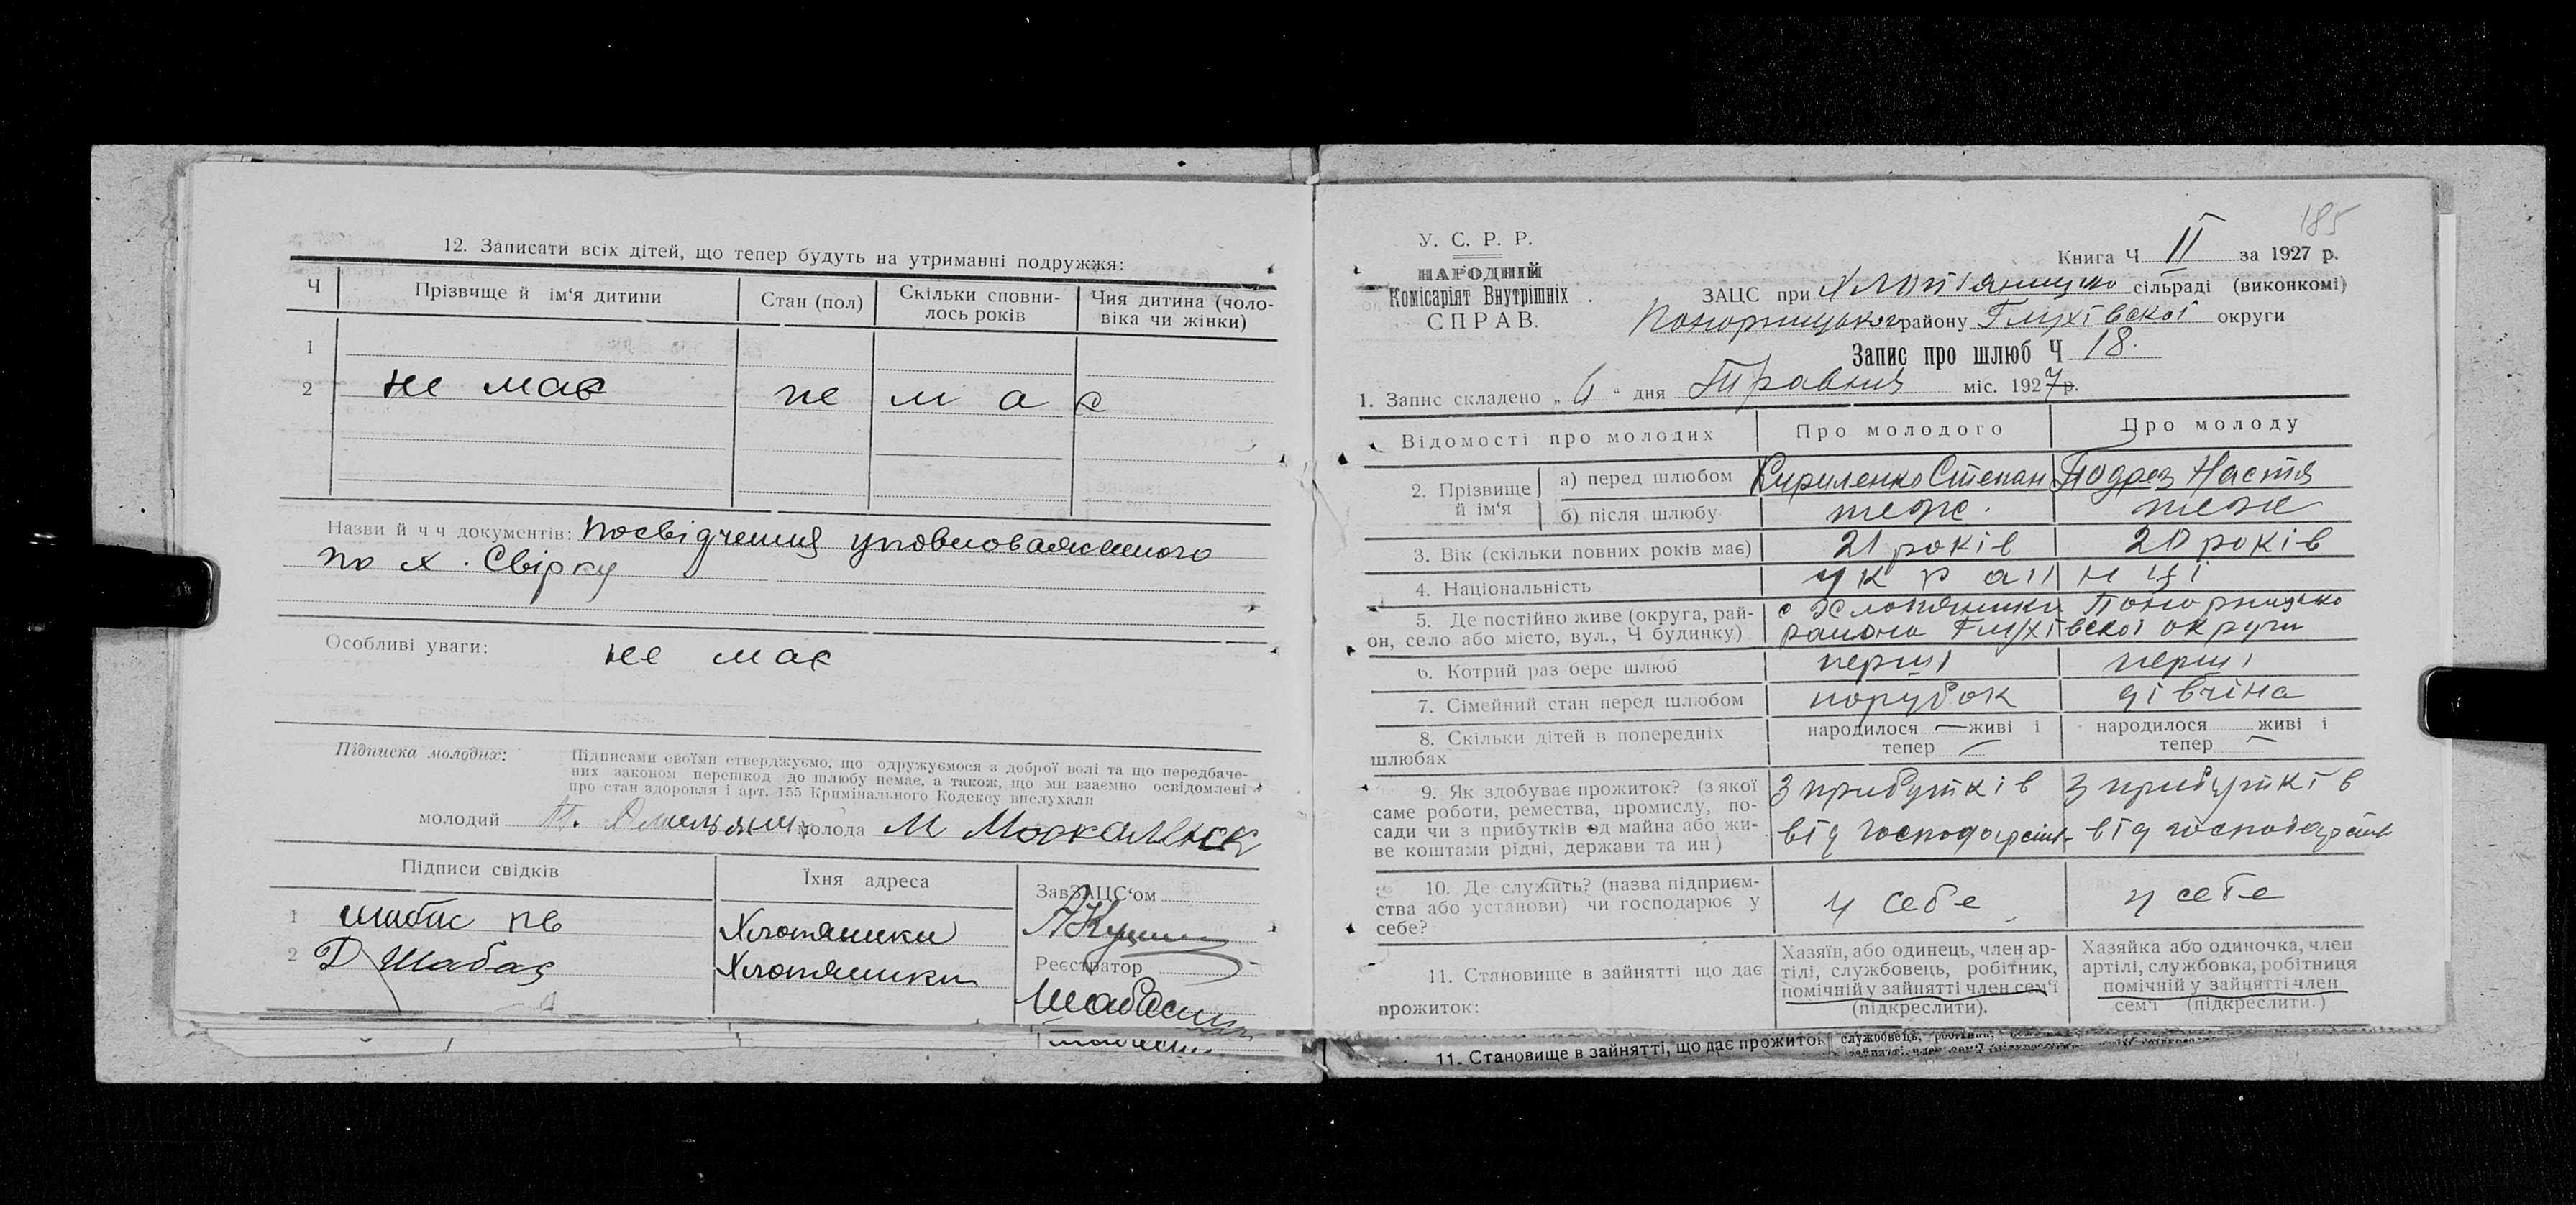 12. Записати всіх дітей, що тепер будуть на утриманні подружжя:
Ч Прізвище й ім‘я дитини Стан (пол) Скільки сповнилось років Чия дитина (чоловіка чи жінки)
1
2 не має не м а є
Назви й ч ч документів: посвідчення уповноваженного
по х. Свірку
Особливі уваги: не має
Підписка молодих: Підписами своїми стверджуємо, що одружуємося з доброї волі та що передбаче-
них законом перешкод до шлюбу немає, а також, що ми взаємно освідомлені
про стан здоровля і арт. 155 Кримінального Кодексу вислухали
молодий молода М Москаленк
Підписи свідків Їхня адреса ЗавЗАЦС‘ом
1 Шабас Хлопяники
2 Д Шабас Хлопяники
Реєстратор
185
У. С. Р. Р.
НАРОДНІЙ
Комісаріят Внутрішніх
СПРАВ.
Книга Ч II за 1927 р.
ЗАЦС при сільраді (виконкомі)
Понорницького району Глухівської округи
Запис про шлюб Ч 18.
1. Запис складено „ 6 “ дня Травня міс. 1927 р.
Відомості про молодих Про молодого Про молоду
2. Прізвище й ім‘я
а) перед шлюбом Кириленко Степан Подрез Настя
б) після шлюбу теж. теж
3. Вік (скільки повних років має) 21 років 20 років
4. Національність у к р а ї н ц і
5. Де постійно живе (округа, рай- с Хлопяники Понорницько
он, село або місто, вул., Ч будинку) района Глухівскоі округи
6. Котрий раз бере шлюб перші перші
7. Сімейний стан перед шлюбом порубок дівчіна
8. Скільки дітей в попередніх народилося — живі і народилося живі і
шлюбах тепер — тепер —
9. Як здобуває прожиток? (з якої З прибутків З прибутків
саме роботи, ремества, промислу, по-
сади чи з прибутків од майна або жи- від господарств від господарств
ве коштами рідні, держави та ин)
10. Де служить? (назва підприєм-
ства або установи) чи господарює у у себе у себе
себе?
Хазяїн, або одинець, член ар- Хазяйка або одиночка, член
11. Становище в зайнятті що дає тілі, службовець, робітник, артілі, службовка, робітниця
помічній у зайнятті член сем‘ї помічній у зайнятті член
прожиток: (підкреслити). сем‘ї (підкреслити.)
11. Становище в зайнятті, що дає прожиток службовець, робітник,